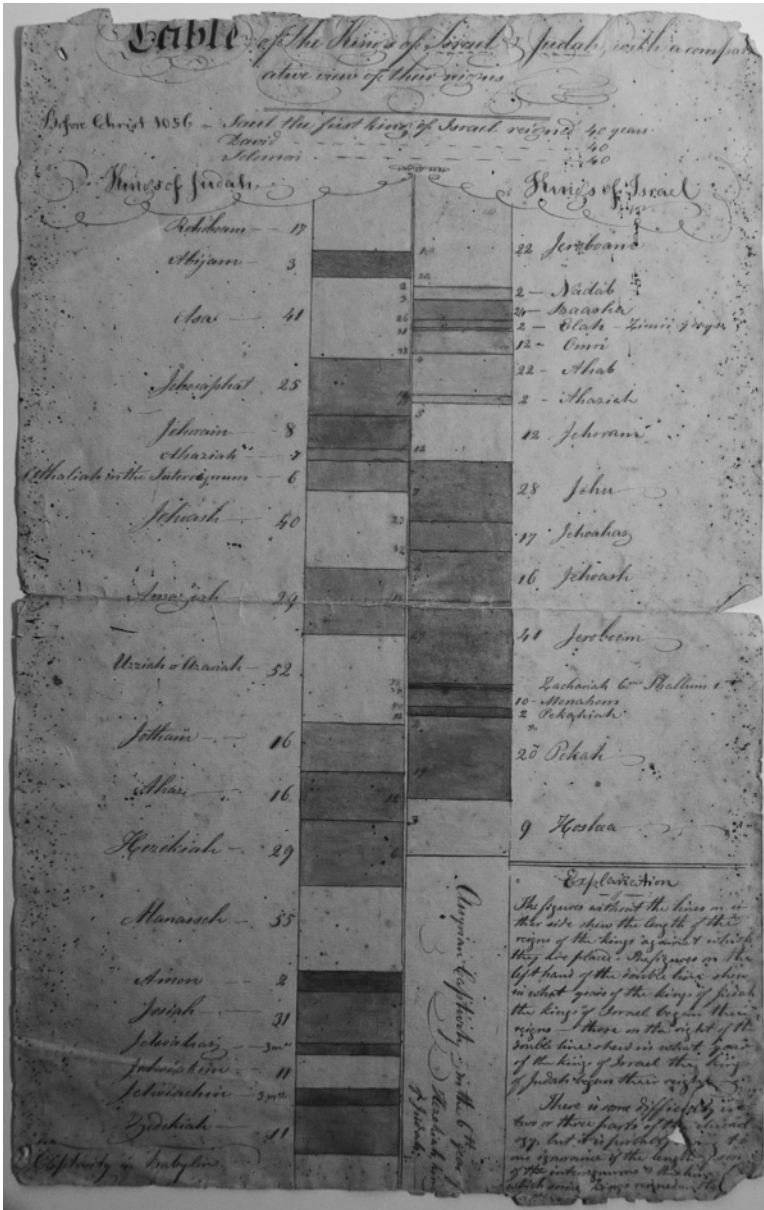 Table of the Kings of Israel & Judah, with a compar
ative view of their reigns
Before Christ 1056 – Saul the first king of Israel reigned 40 years
David - - - 40
Solomon - - - 40
Kings of Judah
Kings of Israel
Rehoboam — 17
Abijam — 3
Asa — 41
Jehosaphat 25
Jehoram — 8
Ahaziah —
Athaliah in the Interregnum — 6
Jehoash — 40
Amaziah 29
Uzziah or Azariah — 52
Jotham — 16
Ahaz 16
Hezekiah — 29
Manasseh — 55
Amon — 2
Josiah — 31
Jehoahaz — 3 mo
Jehoiakim 11
Jehoiachin — 3 mo
Zedekiah — 11
Captivity in Babylon
22 Jeroboam
2 — Nadab
24 — Baasha
2 — Elah — Zimri 7 days
12 — Omri
22 — Ahab
2 — Ahaziah
12 Jehoram
28 Jehu
17 Jehoahaz
16 Jehoash
41 Jeroboam
Zachariah 6 mo Shallum 1 m
10 — Menahem
2 Pekahiah
20 Pekah
9 Hoshea
Assyrian Captivity in the 6th year
of Hezekiah king
of Judah
Explanation
The figures without the lines on ei
ther side shew the length of the
reigns of the kings against which
they are placed. The figures on the
left hand of the double line shew
in what years of the kings of Judah
the kings of Israel began their
reigns — those on the right of the
double line shew in what year
of the kings of Israel the kings
of Judah began their reigns
There is some difficulty in
two or three parts of the chronol
ogy, but it is probably
our ignorance of the length of some
of the interregnums & the time
which some kings reigned